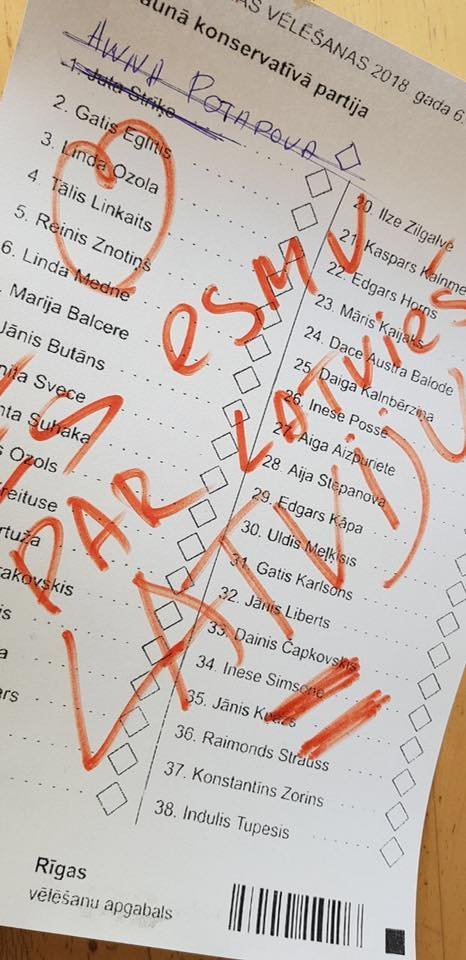 VĒLĒŠANAS 2018. gada 6.
konservatīvā partija
ANNA POTAPOVA
1. Juta Strīķe
2. Gatis Eglītis
3. Linda Ozola
4. Tālis Linkaits
5. Reinis Znotiņš
6. Linda Medne
Marija Balcere
Jānis Butāns
Svece
Suhaka
Ozols
20. Ilze Zilgalve
21. Kaspars
22. Edgars Horns
23. Māris Kaijaks
24. Dace Austra Balode
25. Daiga Kalnbērziņa
26. Inese Posse
27. Aiga Aizpuriete
28. Aija Stepanova
29. Edgars Kāpa
30. Uldis Meļķisis
31. Gatis Karlsons
32. Jānis Liberts
33. Dainis Čapkovskis
34. Inese Simsone
35. Jānis
36. Raimonds Strauss
37. Konstantīns Zorins
38. Indulis Tupesis
ESMU
PAR LATVIEŠ
LATVIJU
Rīgas
vēlēšanu apgabals